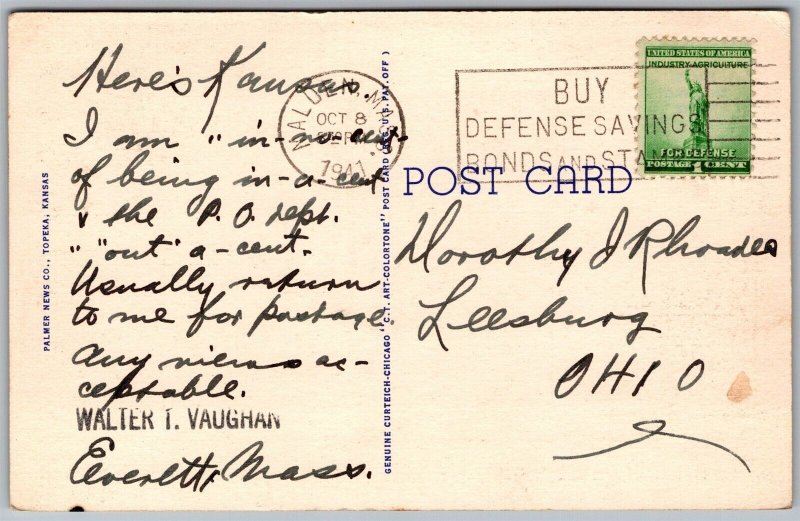 Here's Kansas.
I am "in-no-cent-
of being in-a-cent
& the P. O. Dept.
" "out" a-cent.
Usually return
to me for postage.
Any views ac-
ceptable.
WALTER T. VAUGHAN
Everett, Mass.
PALMER NEWS CO., TOPEKA, KANSAS
GENUINE CURTEICH-CHICAGO "C.T. ART-COLORTONE" POST CARD (REG. U.S. PAT. OFF.)
MALDEN, MASS.
OCT 8
1941
BUY
DEFENSE SAVINGS
BONDS AND STA
UNITED STATES OF AMERICA
INDUSTRY-AGRICULTURE
FOR DEFENSE
POSTAGE 1 CENT
POST CARD
Dorothy J Rhoades
Leesburg
OHIO